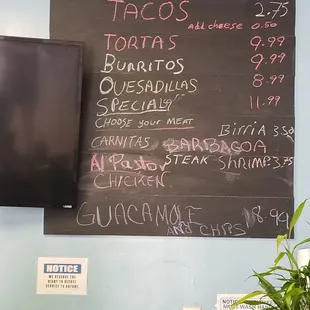 TACOS 2.75
add cheese 0.50
TORTAS 9.99
BURRITOS 9.99
QUESADILLAS 8.99
SPECIAL 11.99
CHOOSE your MEAT
CARNITAS BARBACOA Birria 3.50
Al Pastor STEAK Shrimp 3.75
CHICKEN
GUACAMOLE AND CHIPS 8.99
NOTICE
WE RESERVE THE
RIGHT TO REFUSE
SERVICE TO ANYONE
NOTICE